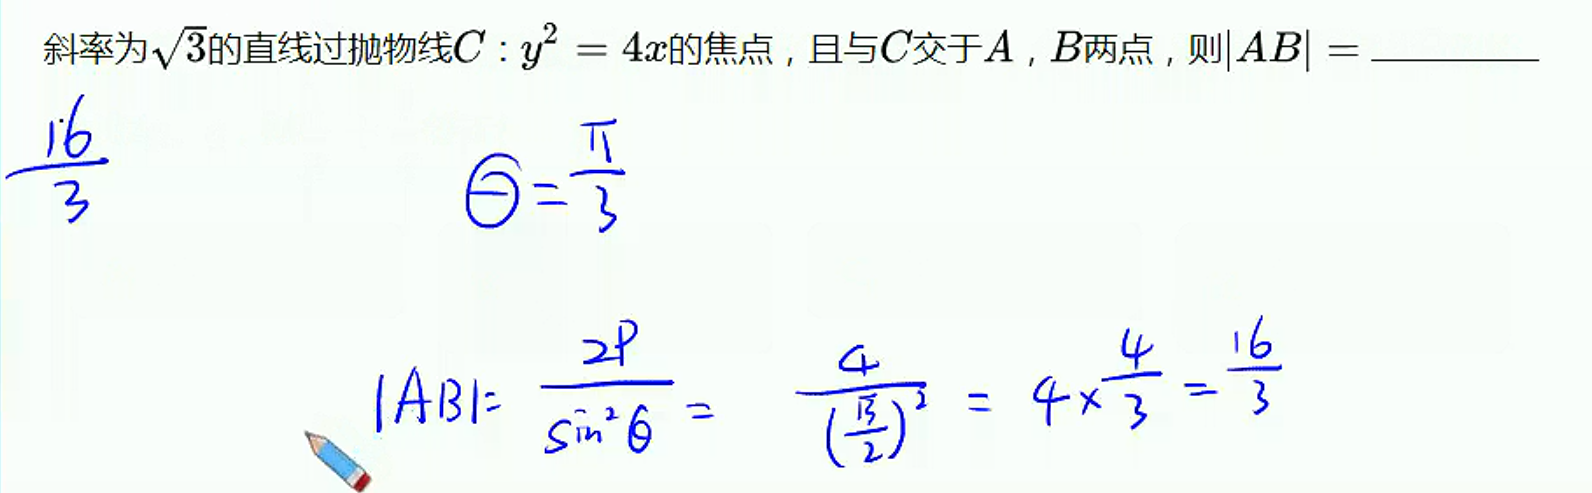 斜率为√3的直线过抛物线C：y² = 4x的焦点，且与C交于A，B两点，则|AB| = ________
16/3
θ = π/3
|AB| = 2P/sin²θ = 4/(√3/2)² = 4 × 4/3 = 16/3